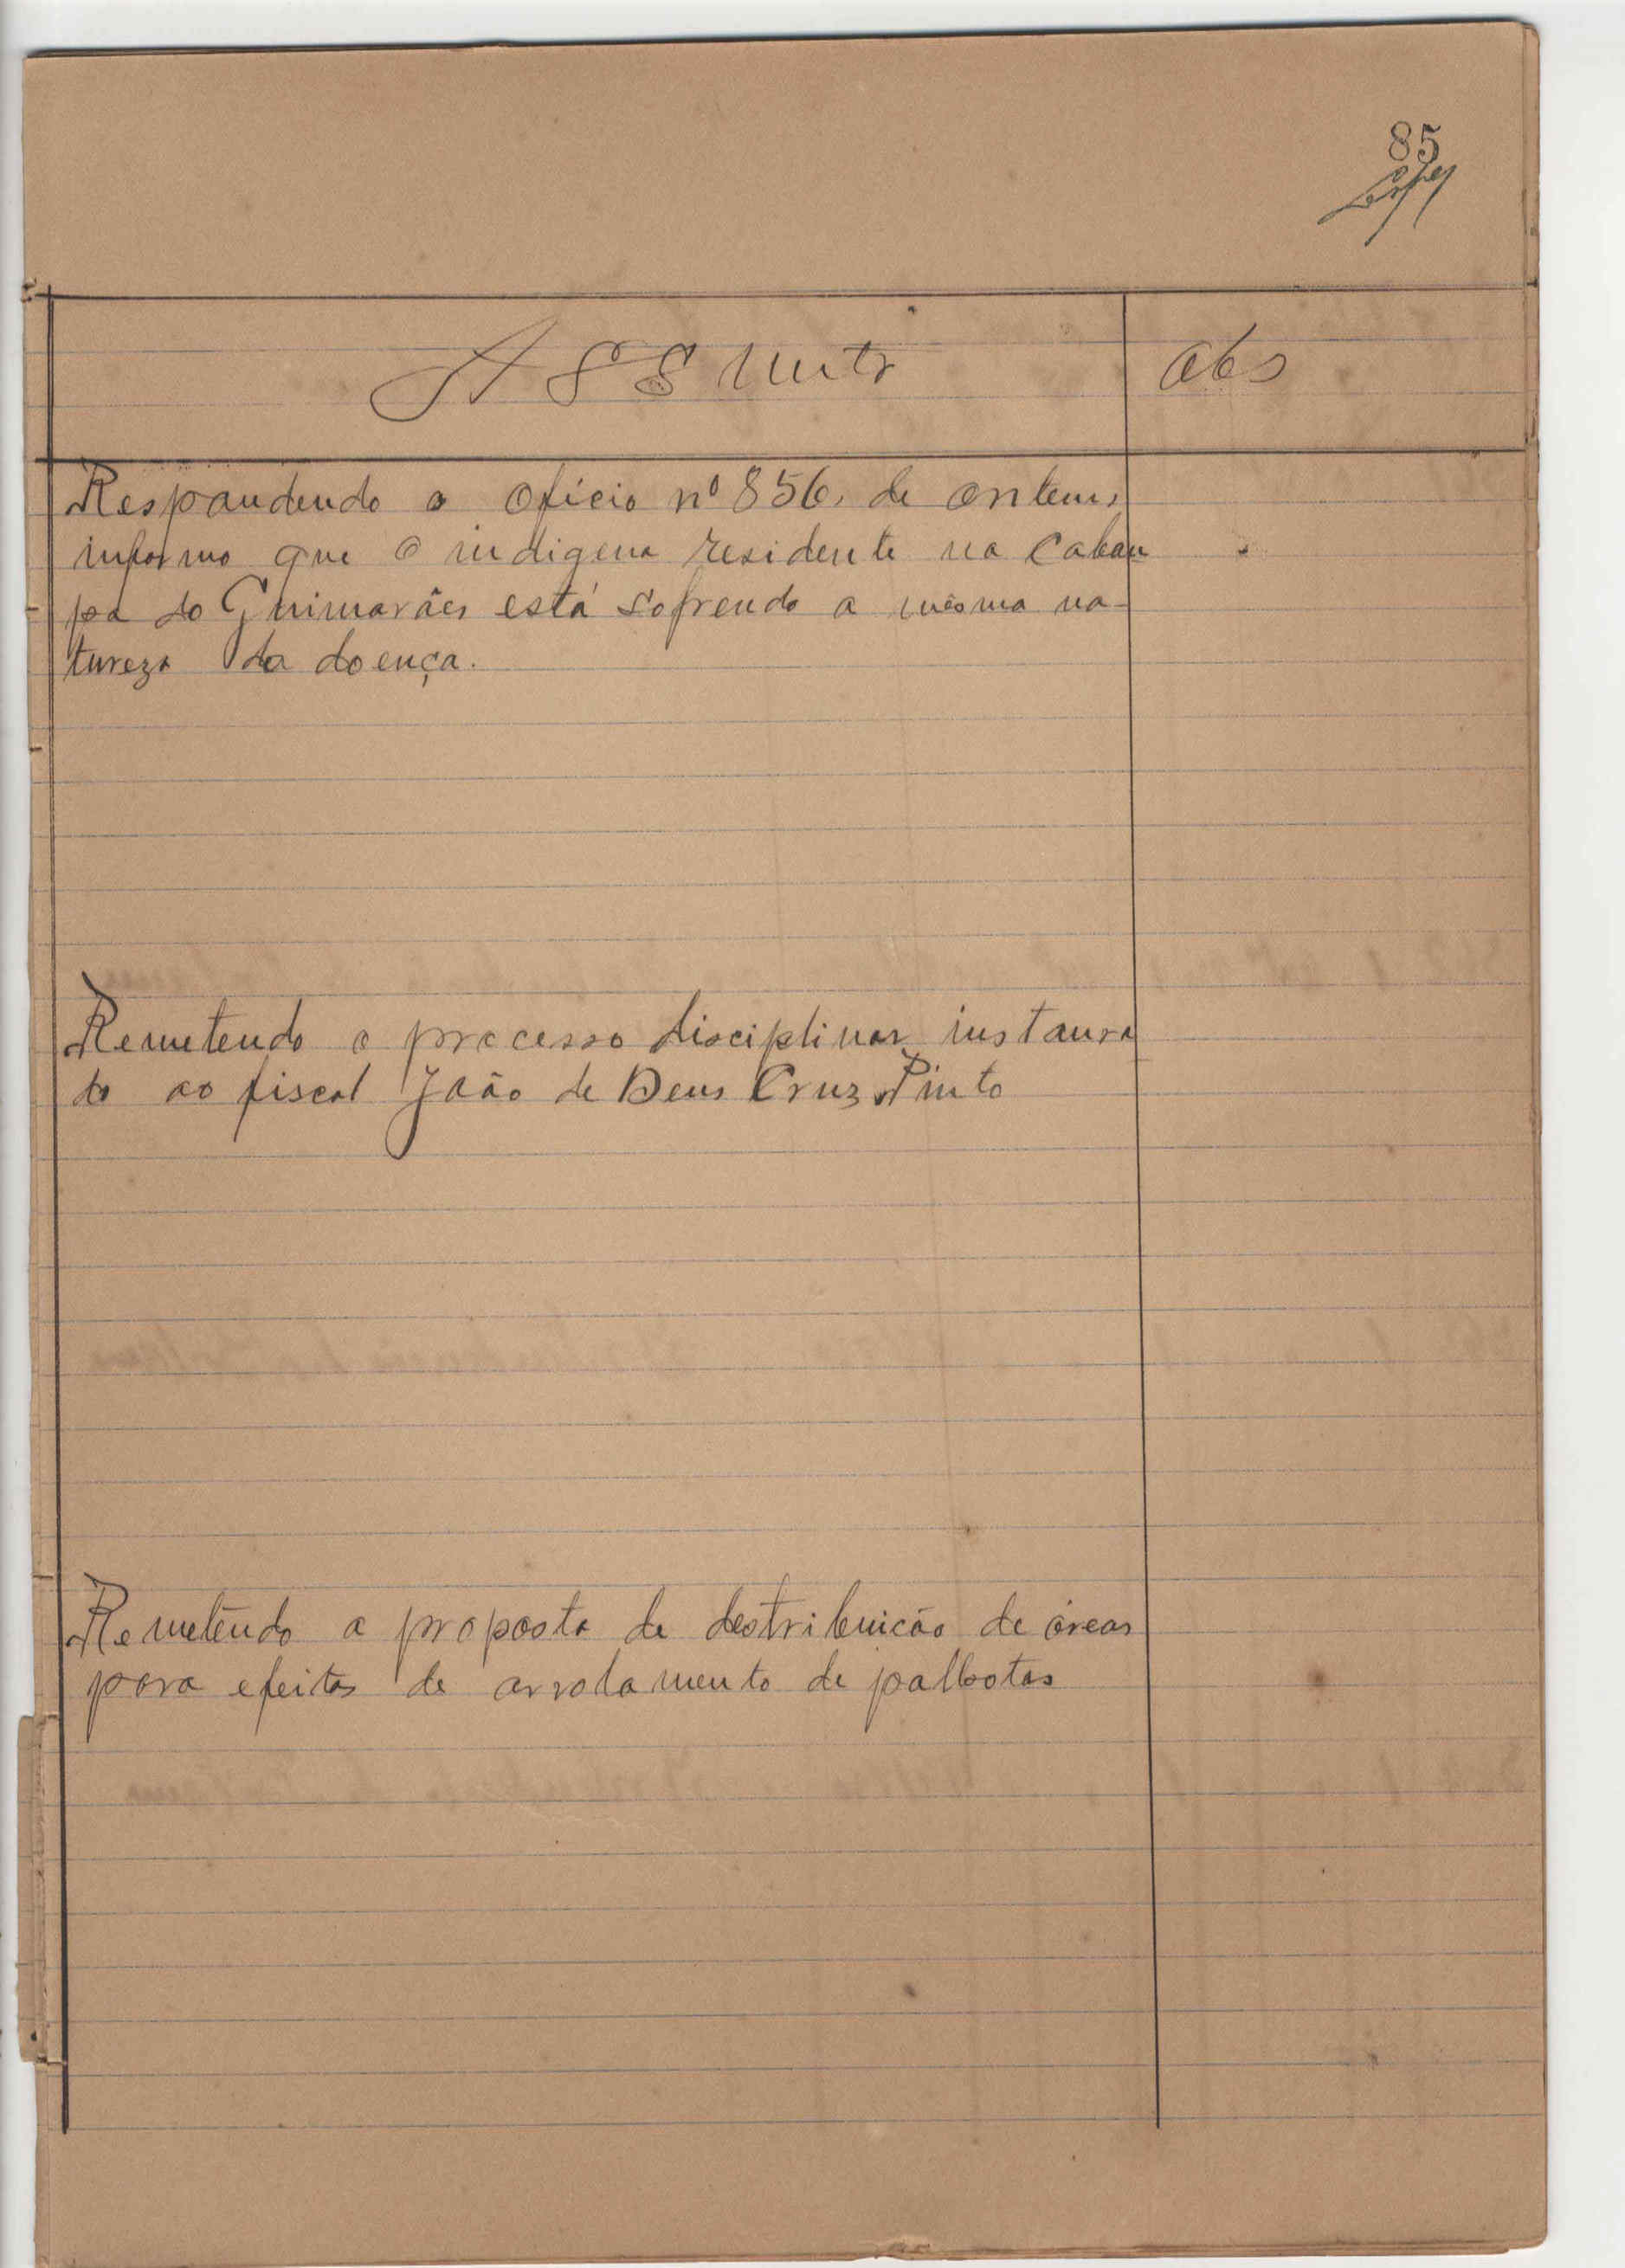 85
Assunto obs
Respondendo o oficio nº 856, de ontem,
informo que o indigena residente na Caban
pa do Guimarães está sofrendo a mêsma na-
tureza da doença.
Remetendo o processo disciplinar instaura
do ao fiscal João de Deus Cruz Pinto
Remetêndo a proposta de destribuicão de áreas
para efeitos de arrolamento de palhotas